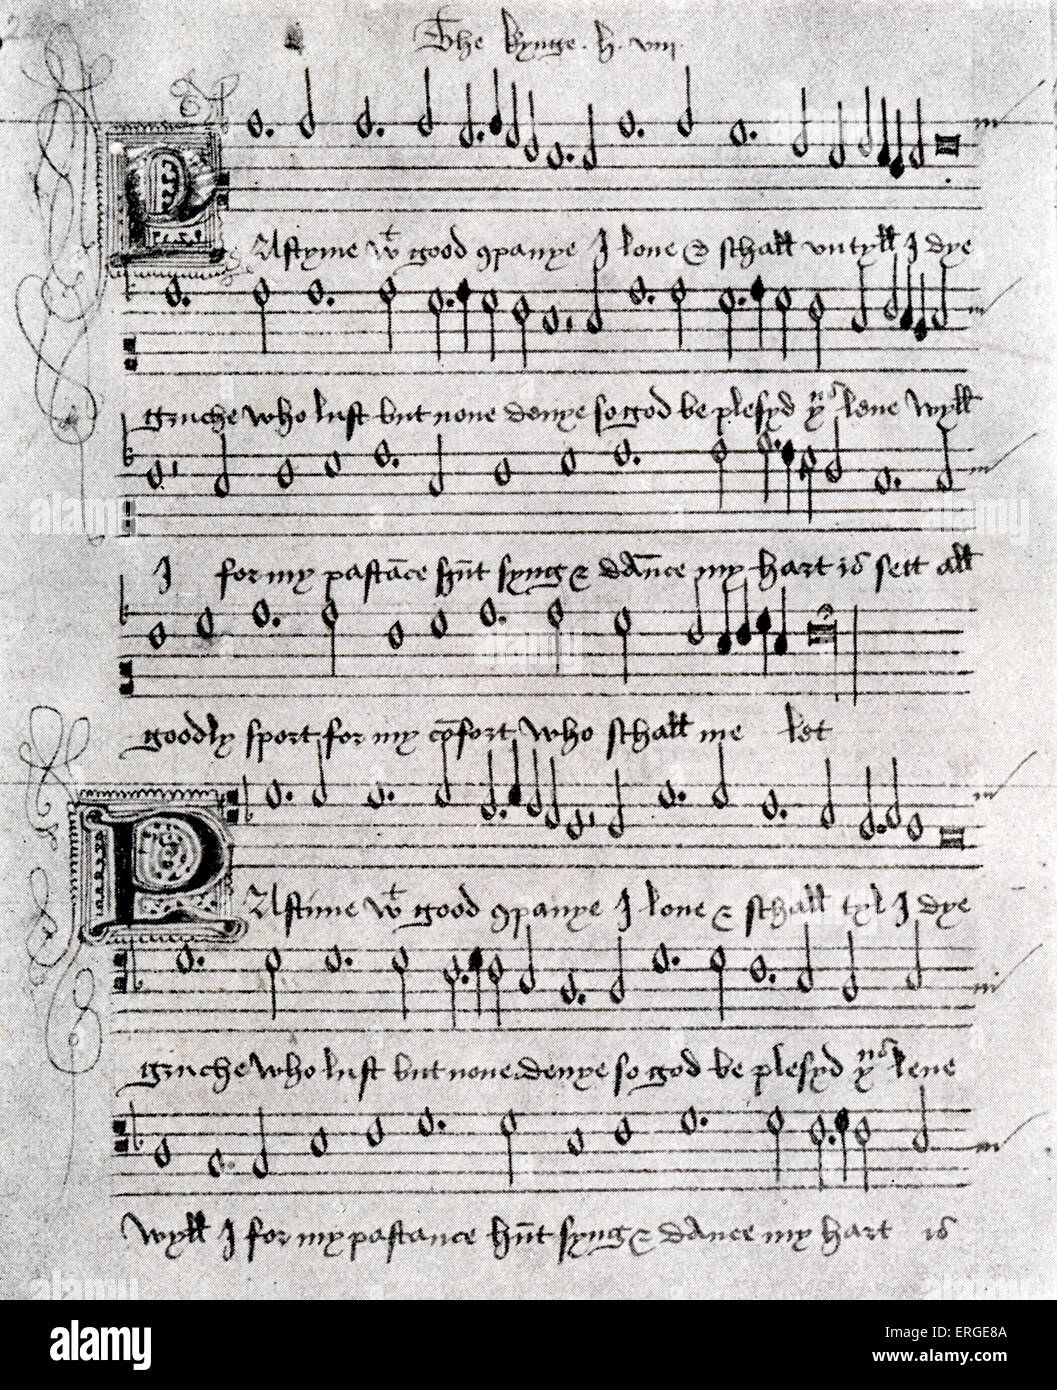 The kynge . h . viii .
Pastyme wt good 9panye I love & schall untyll I dye
gruche who lust but none denye so god be plesyd yus leve wyll
I for my pastāce hūt syng & dāˉnce my hart is sett all
goodly sport for my cōfort who schall me let
Pastime wt good 9panye I love & schall tyl I dye
gruche who lust but none denye so god be plesyd yus leve
wyll I for my pastance hūt syng & dance my hart is
alamy
Image ID: ERGE8A
www.alamy.com